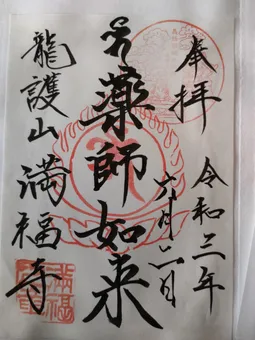 奉拝
令和三年
六月二日
藥師如来
龍護山 満福寺